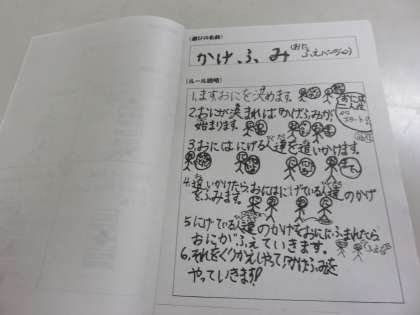 (遊びの名前)
かげふみ (おにふえバージョン)
(ルール説明)
1.まずおにを決めます。
おには二人
スタート
2.おにが決まればかげふみが
始まります。
3.おにはにげる人達を追いかけます。
4.追いかけたらおにはにげている人達のかげ
をふみます。
5.にげている人達のかげをおににふまれたら
おにがふえていきます。
6.それをくりかえしやってかげふみを
やっていきます!